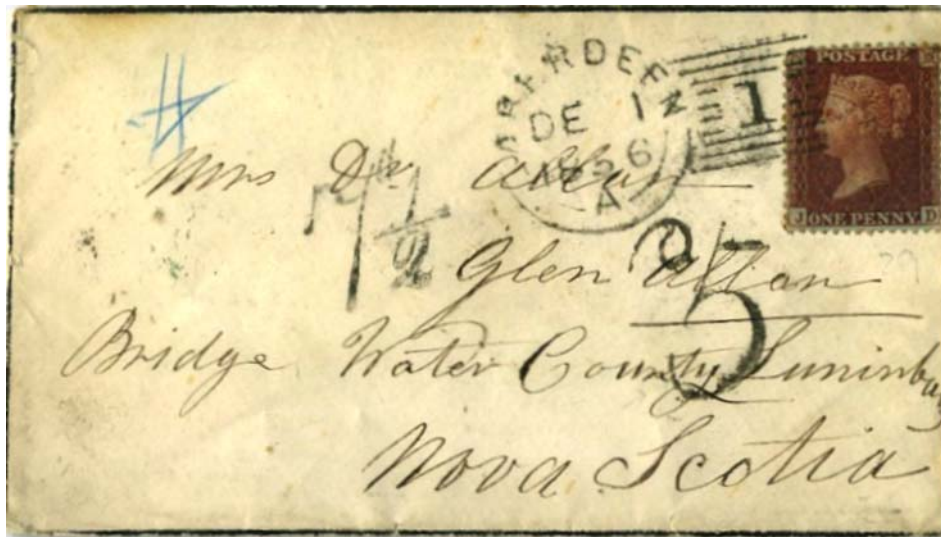 ABERDEEN
DE 1
1856
A
1
POSTAGE
J ONE PENNY D
Mrs Dr Allan
7½
Glen Allan
5
Bridge Water County Luninbug
Nova Scotia